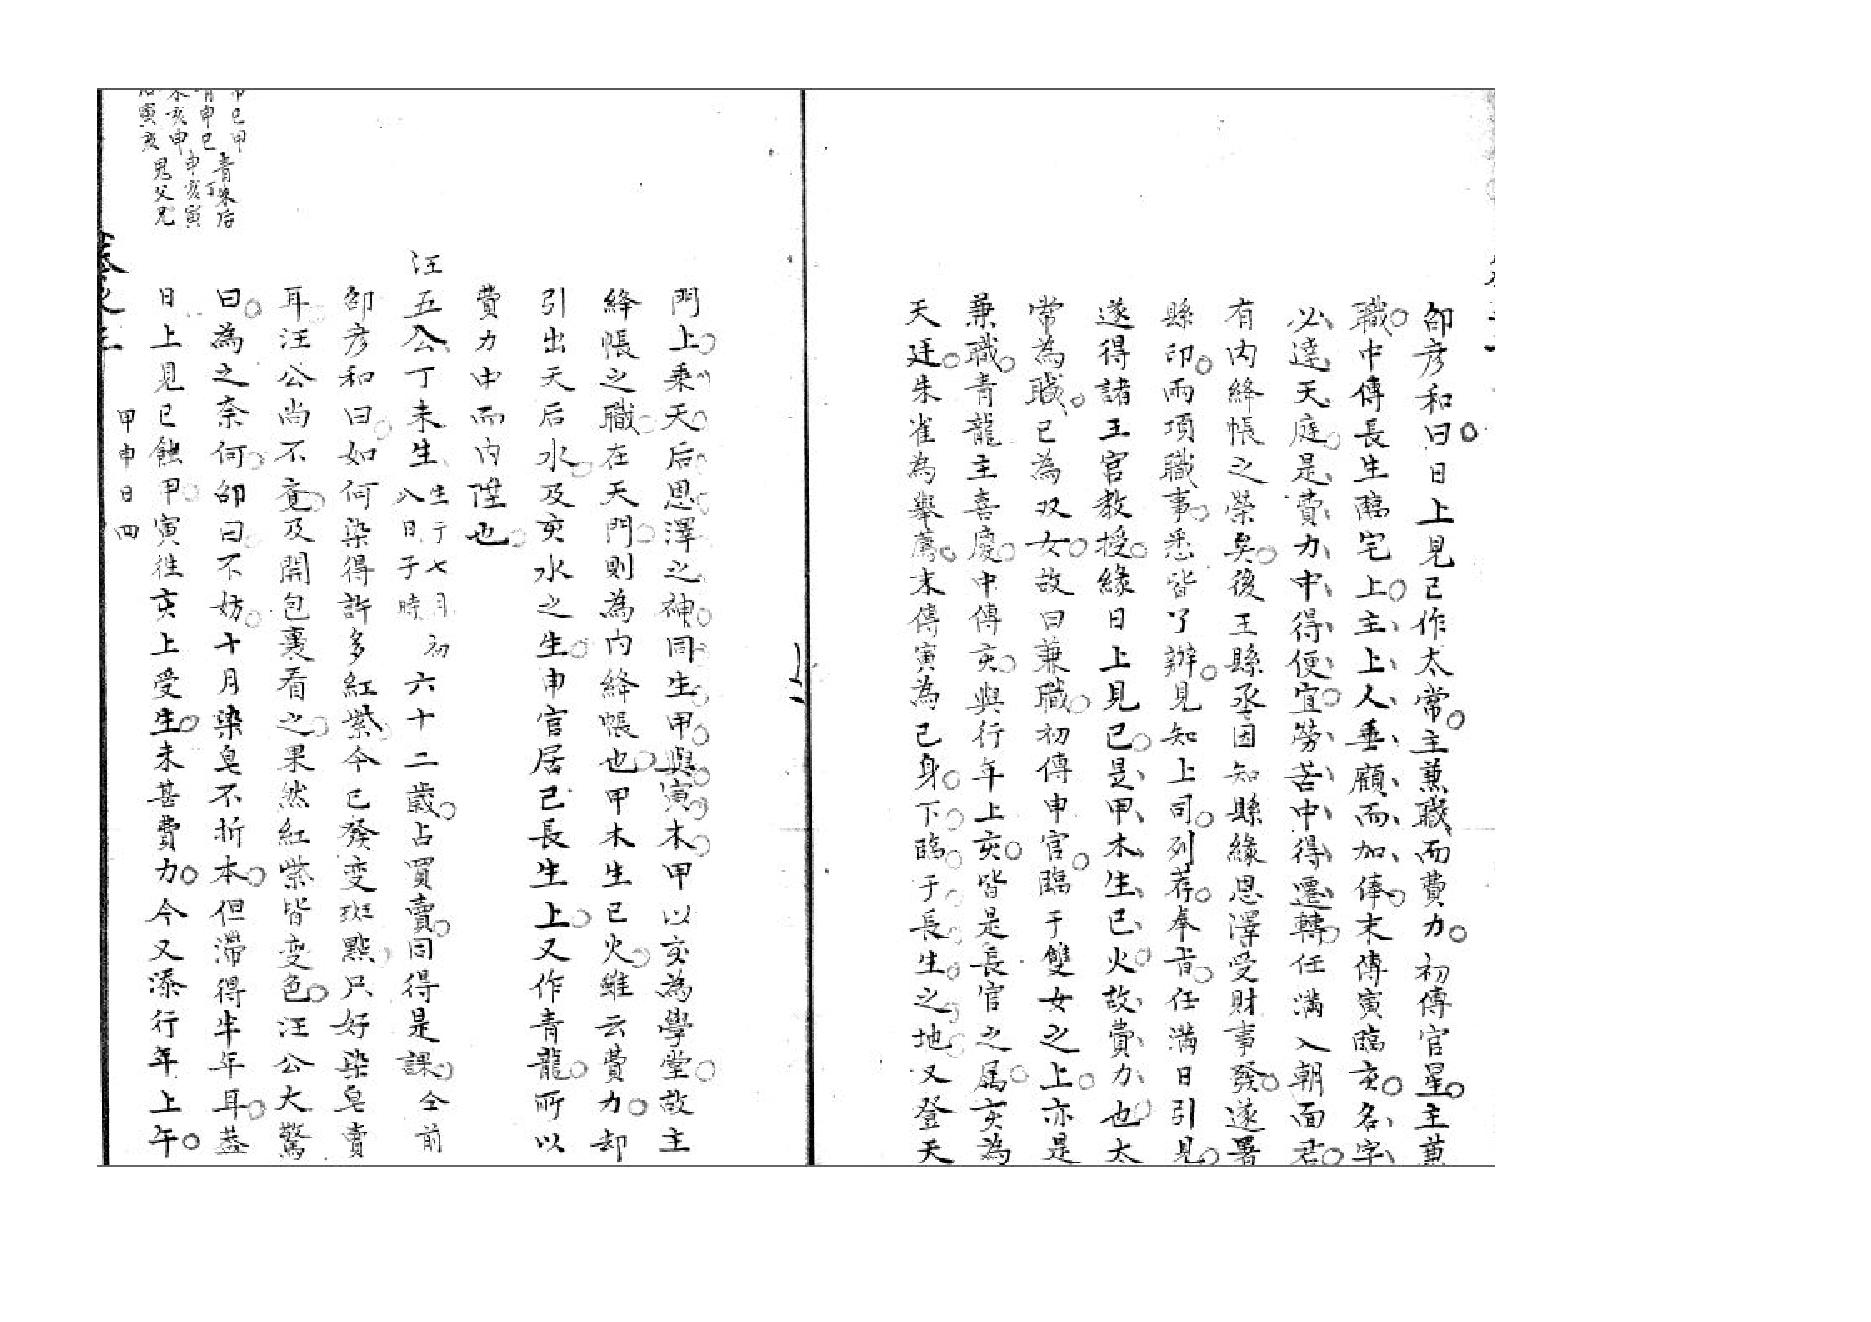 邵彦和曰日上見己作太常主兼職而費力初傳官星主兼
職中傳長生臨宅上主上人垂顧而加俸末傳寅臨亥名字
必達天庭是費力中得便宜勞苦中得遷轉任滿入朝面君
有内絳帳之榮矣後王縣丞因知縣緣恩澤受財事發遂署
縣印兩項職事悉皆了辦見知上司列荐奉旨任滿日引見
遂得諸王宮教授緣日上見己是甲木生巳火故費力也太
常為職巳為双女故曰兼職初傳申官臨于雙女之上亦是
兼職青龍主喜慶中傳亥與行年上亥皆是長官之属亥為
天廷朱雀為舉薦末傳寅為己身下臨于長生之地又登天
門上乘天后恩澤之神同生甲與寅木甲以亥為學堂故主
絳帳之職在天門則為内絳帳也甲木生巳火雖云費力却
引出天后水及亥水之生申官居己長生上又作青龍所以
費力中而内陞也
汪五公丁未生生于七月初八日子時六十二歲占買賣同得是課仝前
邵彦和曰如何染得許多紅紫今已發变斑點只好染皂賣
耳汪公尚不竟及開包裹看之果然紅紫皆变色汪公大驚
曰為之奈何邵曰不妨十月染皂不折本但滯得半年耳盖
日上見巳蝕甲寅徃亥上受生未甚費力今又添行年上午
甲申日四
巳甲
申巳
亥申
寅亥
青朱后
申亥寅
鬼父兄